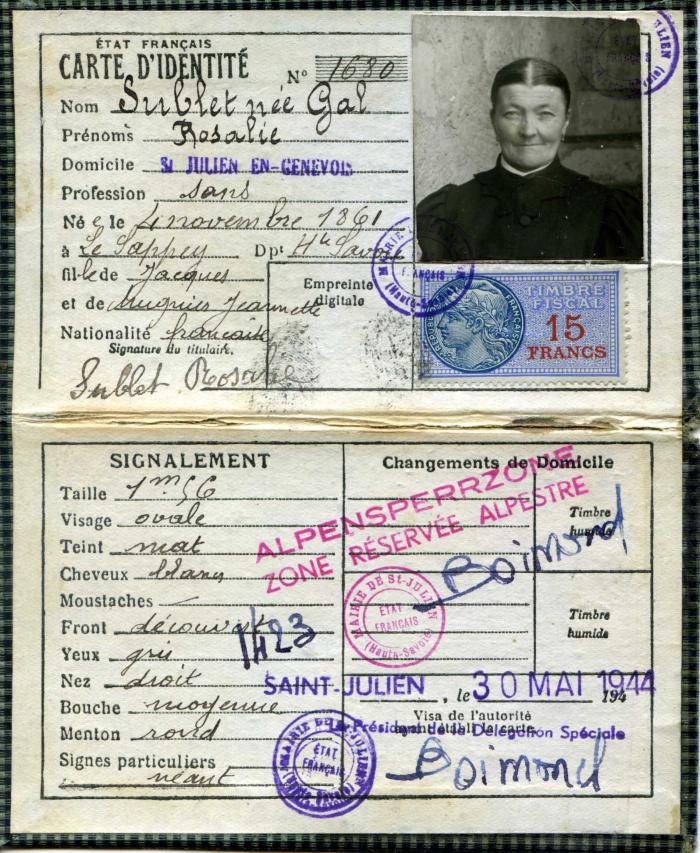 ÉTAT FRANÇAIS
CARTE D'IDENTITÉ
N° 1680
Nom Sublet née Gal
Prénoms Rosalie
Domicile St JULIEN EN-GENEVOIS
Profession sans
Né e le 4 novembre 1861
à Le Sappey Dpt Hte Savoie
fille de Jacques
et de Mugnier Jeannette
Nationalité française
Signature du titulaire.
Sublet Rosalie
Empreinte
digitale
MAIRIE
ÉTAT
FRANÇAIS
(Haute-Savoie)
RÉPUBLIQUE FRANÇAISE
TIMBRE
FISCAL
15
FRANCS
SIGNALEMENT
Taille 1m56
Visage ovale
Teint mat
Cheveux blancs
Moustaches
Front découvert
Yeux gris
Nez droit
Bouche moyenne
Menton rond
Signes particuliers
néant
1423
Changements de Domicile
ALPENSPERRZONE
ZONE RÉSERVÉE ALPESTRE
Timbre
humide
Boimond
MAIRIE DE St-JULIEN
ÉTAT
FRANÇAIS
(Haute-Savoie)
Timbre
humide
SAINT-JULIEN, le 30 MAI 1944
194
Visa de l'autorité
Président de la Délégation Spéciale
Boimond
MAIRIE DE St-JULIEN
ÉTAT
FRANÇAIS
(Haute-Savoie)